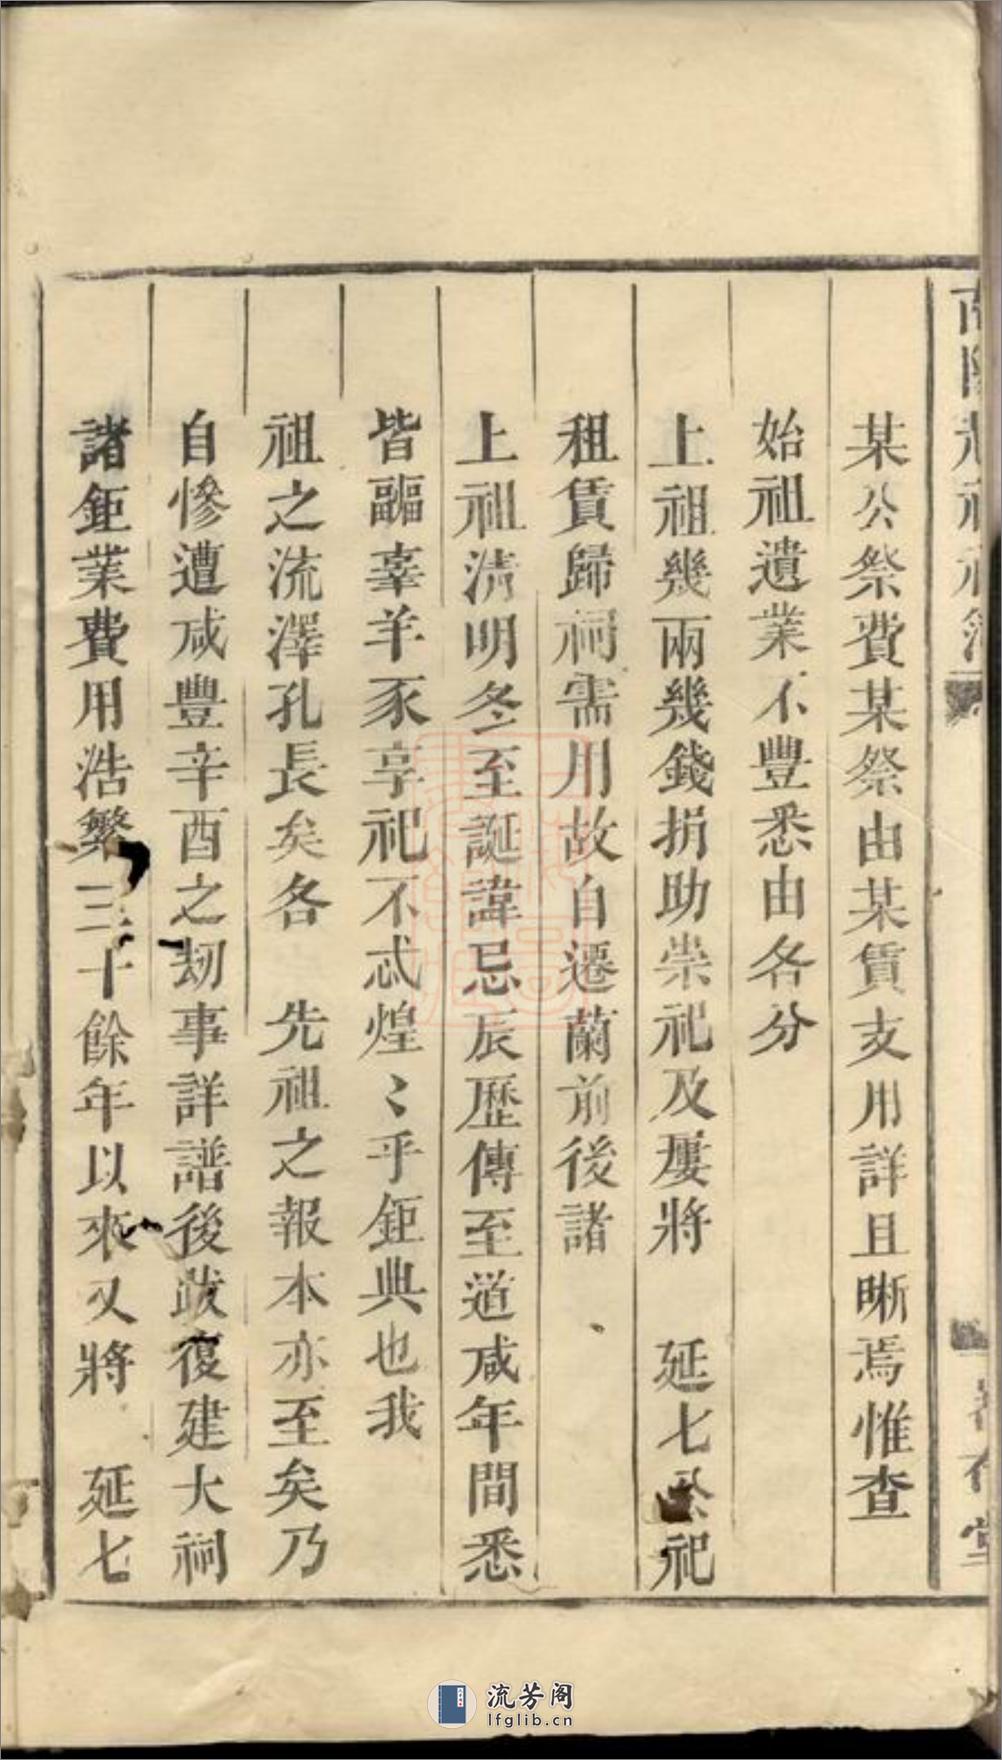 某公祭費某祭由某賃支用詳且晰焉惟查
始祖遺業不豐悉由各分
上祖幾兩幾錢捐助崇祀及屢將 延七公祀
租賃歸祠需用故自遷蘭前後諸
上祖淸明冬至誕諱忌辰歷傳至道咸年間悉
皆副辜羊豕享祀不忒煌〻乎鉅典也我
祖之流澤孔長矣各 先祖之報本亦至矣乃
自慘遭咸豐辛酉之劫事詳譜後跋復建大祠
諸鉅業費用浩繁三十餘年以來又將 延七
流芳阁
lfglib.cn